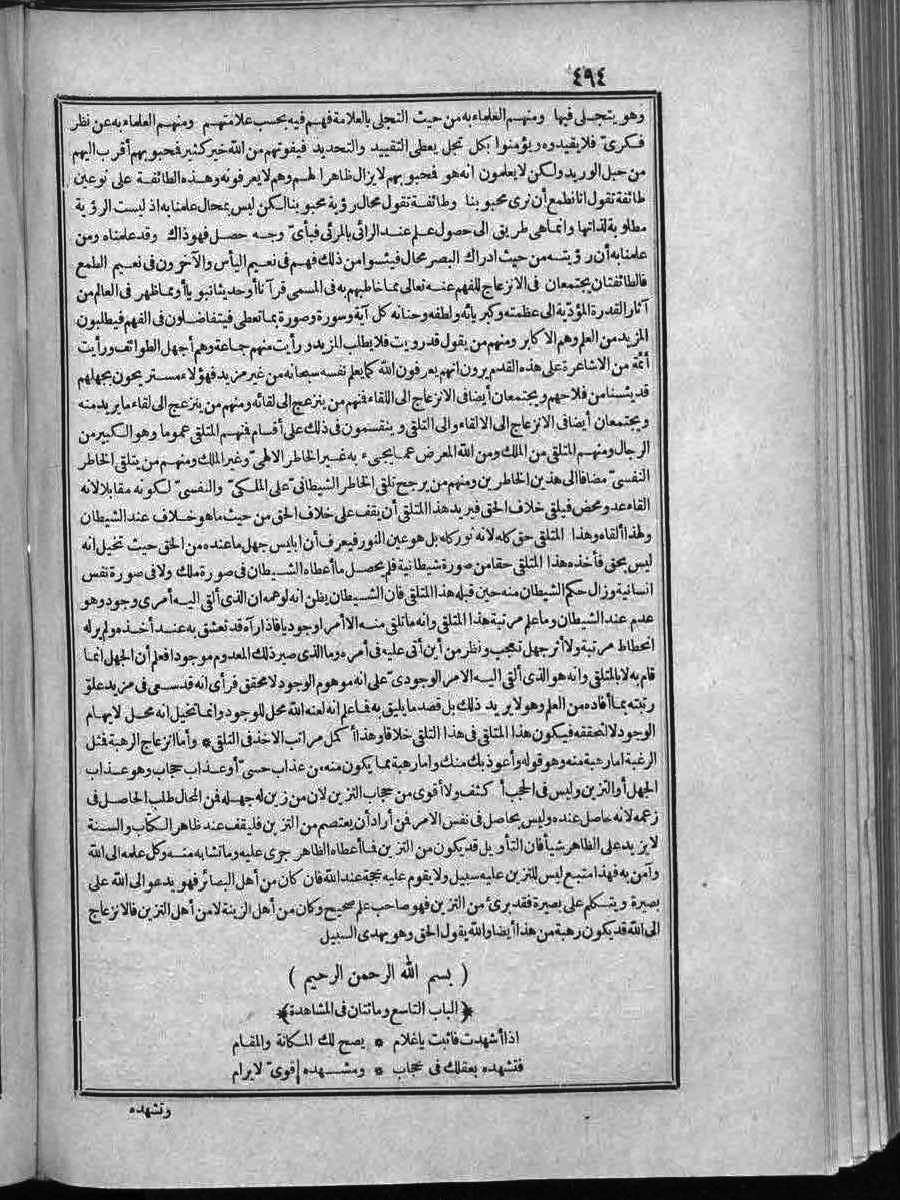 ٤٩٤
وهو يتجلى فيها ومنهم العلماء به من حيث التجلى بالعلامة فهم فيه بحسب علامتهم ومنهم العلماء به عن نظر
فكرىّ فلا يقيدوه ويؤمنوا بكل تجل يعطى التقييد والتحديد فيفوتهم من الله خير كثير فحبوبهم أقرب اليهم
من حبل الوريد ولكن لا يعلمون انه هو فحبوبهم لا يزال ظاهرا لهم وهم لا يعرفونه وهذه الطائفة على نوعين
طائفة تقول انا نطمع أن نرى محبوبنا وطائفة تقول محال رؤية محبوبنا لكن ليس بمحال علمنا به اذ ليست الرؤية
مطلوبة لذاتها وانما هى طريق الى حصول علم عند الرائى بالمرئى فبأىّ وجه حصل فهو ذاك وقد علمناه ومن
علمنا به أن رؤيته من حيث ادراك البصر محال فيئسوا من ذلك فهم فى نعيم اليأس والآخرون فى نعيم الطمع
فالطائفتان يجتمعان فى الانزعاج للفهم عنه تعالى مما خاطبهم به فى المسمى قرآنا أو حديثا نبويا أو مما ظهر فى العالم من
آثار القدرة المؤدّية الى عظمته وكبريائه ولطفه وحنانه كل آية وسورة وصورة بما تعطى فيتفاضلون فى الفهم فيطلبون
المزيد من العلم وهم الاكابر ومنهم من يقول قد رويت فلا يطلب المزيد ورأيت منهم جماعة وهم أجهل الطوائف ورأيت
أئمة من الاشاعرة على هذه القدم يرون انهم يعرفون الله كما يعلم نفسه سبحانه من غير مزيد فهؤلاء مستريحون بجهلهم
قد يئسنا من فلاحهم ويجتمعان أيضا فى الانزعاج الى اللقاء فنهم من ينزعج الى لقائه ومنهم من ينزعج الى لقاء ما يريد منه
ويجتمعان أيضا فى الانزعاج الى الالقاء والى التلقى وينقسمون فى ذلك على أقسام فنهم المتلقى عموما وهو الكبير من
الرجال ومنهم المتلقى من الملك ومن الله المعرض عما يجىء به غير الخاطر الالهىّ وغير الملك ومنهم من يتلقى الخاطر
النفسىّ مضافا الى هذين الخاطرين ومنهم من يرجح تلقى الخاطر الشيطانىّ على الملكىّ والنفسىّ لكونه مقابلا لانه
القاء عدو محض فيلقى خلاف الحق فيريد هذا المتلقى أن يقف على خلاف الحق من حيث ما هو خلاف عند الشيطان
ولهذا ألقاه وهذا المتلقى حق كله لانه نور كله بل هو عين النور فيعرف أن ابليس جهل ما عنده من الحق حيث تخيل انه
ليس بحق فأخذه هذا المتلقى حقا من صورة شيطانية فلم يحصل ما أعطاه الشيطان فى صورة ملك ولا فى صورة نفس
انسانية وزال حكم الشيطان منه حين قبله هذا المتلقى فان الشيطان يظن انه لوهمه ان الذى ألقى اليه أمرى وجود وهو
عدم عند الشيطان وما علم مرتبة هذا المتلقى وانه ما تلقى منه الا أمرا وجوديا فاذا رآه قد تعشق به عند أخذه ولم ير له
انحطاط مرتبة ولا أثر جهل تعجب ونظر من أين أتى عليه فى أمره وما الذى صير ذلك المعدوم موجودا فعلم أن الجهل انما
قام به لا بالمتلقى وانه هو الذى ألقى اليه الامر الوجودىّ على انه موهوم الوجود لا محقق فرأى انه قد سعى فى مزيد علوّ
رتبته بما أفاده من العلم وهو لا يريد ذلك بل قصد ما يليق به فاعلم انه لعنه الله محل للوجود وانما تخيل انه محل لايهام
الوجود لا لتحققه فيكون هذا المتلقى فى هذا التلقى خلاقا وهذا أكمل مراتب الاخذ فى التلقى * وأما انزعاج الرهبة فمثل
الرغبة اما رهبة منه وهو قوله وأعوذ بك منك واما رهبة مما يكون منه من عذاب حسىّ أو عذاب حجاب وهو عذاب
الجهل أو التزين وليس فى الحجب أكثف ولا أقوى من حجاب التزين لان من زين له جهله فمن المحال طلب الحاصل فى
زعمه لانه حاصل عنده وليس بحاصل فى نفس الامر فمن أراد أن يعتصم من التزين فليقف عند ظاهر الكتاب والسنة
لا يزيد على الظاهر شيأ فان التأويل قد يكون من التزين فما أعطاه الظاهر جرى عليه وما تشابه منه وكل علمه الى الله
وآمن به فهذا متبع ليس للتزين عليه سبيل ولا يقوم عليه حجة عند الله فان كان من أهل البصائر فهو يدعو الى الله على
بصيرة ويتكلم على بصيرة فقد برئ من التزين فهو صاحب علم صحيح وكان من أهل الزينة لا من أهل التزين فالانزعاج
الى الله قد يكون رهبة من هذا أيضا والله يقول الحق وهو يهدى السبيل
( بسم الله الرحمن الرحيم )
﴿الباب التاسع ومائتان فى المشاهدة﴾
اذا أشهدت فاثبت ياغلام * يصح لك المكانة والمقام
فتشهده بعقلك فى حجاب * ومشهده أقوىّ لا يرام
وتشهده